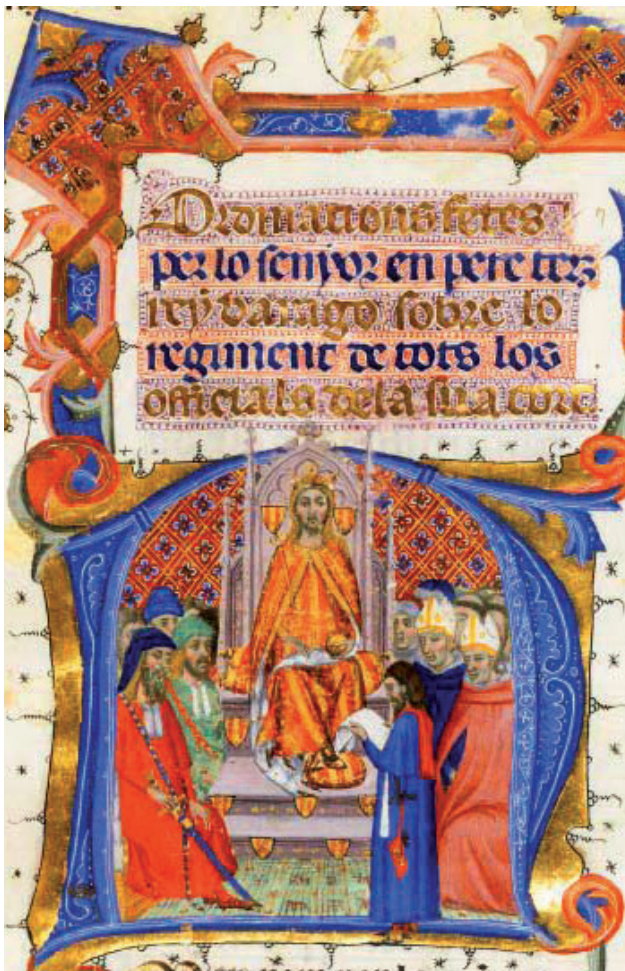 Ordinacions fetes
per lo senyor en pere terç
rey darago sobre lo
regiment de tots los
officials dela sua cort